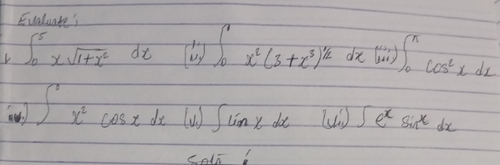 Evaluate:
i. ∫₀⁵ x √1+x² dx (ii) ∫₀¹ x² (3 + x³)^½ dx (iii) ∫₀^π cos² x dx
∫ x² cos x dx (vi) ∫ sin x dx (vii) ∫ eˣ sin x dx
Soltn :